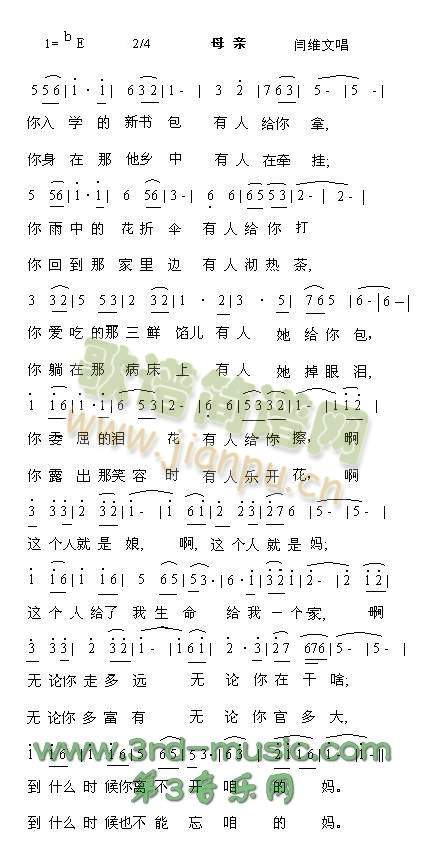 1= b E 2/4 母亲 闫维文唱
5 5 6 | 1 · 1 | 6 3 2 | 1 - | 3 2 | 7 6 3 | 5 - | 5 - |
你入 学 的 新书 包 有 人 给你 拿,
你身 在 那 他乡 中 有 人 在牵 挂;
5 56 | 1 · 1 | 6 56 | 3 - | 6 6 | 65 53 | 2 - | 2 - |
你 雨 中 的 花 折 伞 有 人 给 你 打
你 回 到 那 家 里 边 有 人 沏 热 茶,
3 32 | 5 53 | 2 32 | 1 · 2 | 3 · 5 | 7 65 | 6 - | 6 - |
你 爱 吃 的 那 三 鲜 馅儿 有 人 她 给 你 包,
你 躺 在 那 病 床 上 有 人 她 掉 眼 泪,
1 16 | 1 · 1 | 6 53 | 2 - | 6 · 6 | 5332 | 1 - | 112 |
你 委 屈 的 泪 花 有 人 给 你 擦, 啊
你 露 出 那 笑 容 时 有 人 乐 开 花, 啊
3 33 | 2 32 | 1 - | 1 61 | 2 · 3 | 276 | 5 - | 5 - |
这 个人 就 是 娘, 啊, 这 个 人 就 是 妈;
1 16 | 1 16 | 5 65 | 53 · | 6 · 1 | 321 | 2 - | 2 12 |
这 个 人 给了 我 生 命 给 我 一 个 家, 啊
3 33 | 2 32 | 1 - | 1 61 | 2 · 3 | 27 676 | 5 - | 5 - |
无 论你 走 多 远 无 论 你 在 干 啥;
无 论你 多 富 有 无 论 你 官 多 大,
1 16 | 1 16 | 5 65 | 53 · | 6 3 3 | 2116 | 1 - | 1 - |
到 什么 时 候你 离 不 开 咱 的 妈。
到 什么 时 候也 不 能 忘 咱 的 妈。
歌谱简谱网
www.jianpu.cn
www.3rd-music.com
第3音乐网